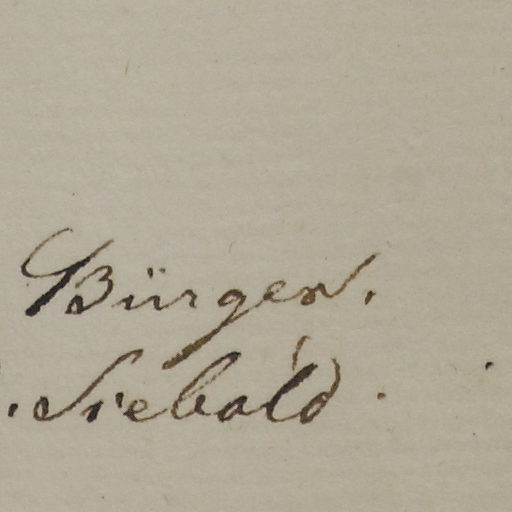 Bürger.
. Siebold.